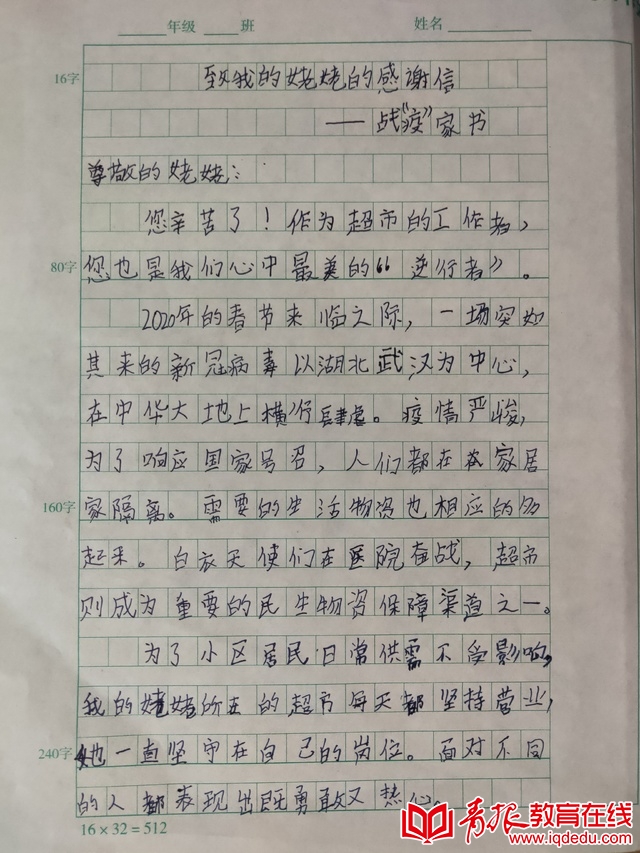 年级 班 姓名
16字
致我的姥姥的感谢信
——战“疫”家书
尊敬的姥姥:
您辛苦了!作为超市的工作者,
80字 您也是我们心中最美的“逆行者”。
2020年的春节来临之际,一场突如
其来的新冠病毒以湖北武汉为中心,
在中华大地上横行肆虐。疫情严峻,
为了响应国家号召,人们都在家居
160字 家隔离。需要的生活物资也相应的多
起来。白衣天使们在医院奋战,超市
则成为重要的民生物资保障渠道之一。
为了小区居民日常供需不受影响,
我的姥姥所在的超市每天都坚持营业,
240字 她一直坚守在自己的岗位。面对不同
的人都表现出既勇敢又热心。
16×32=512
青报教育在线
www.iqdedu.com